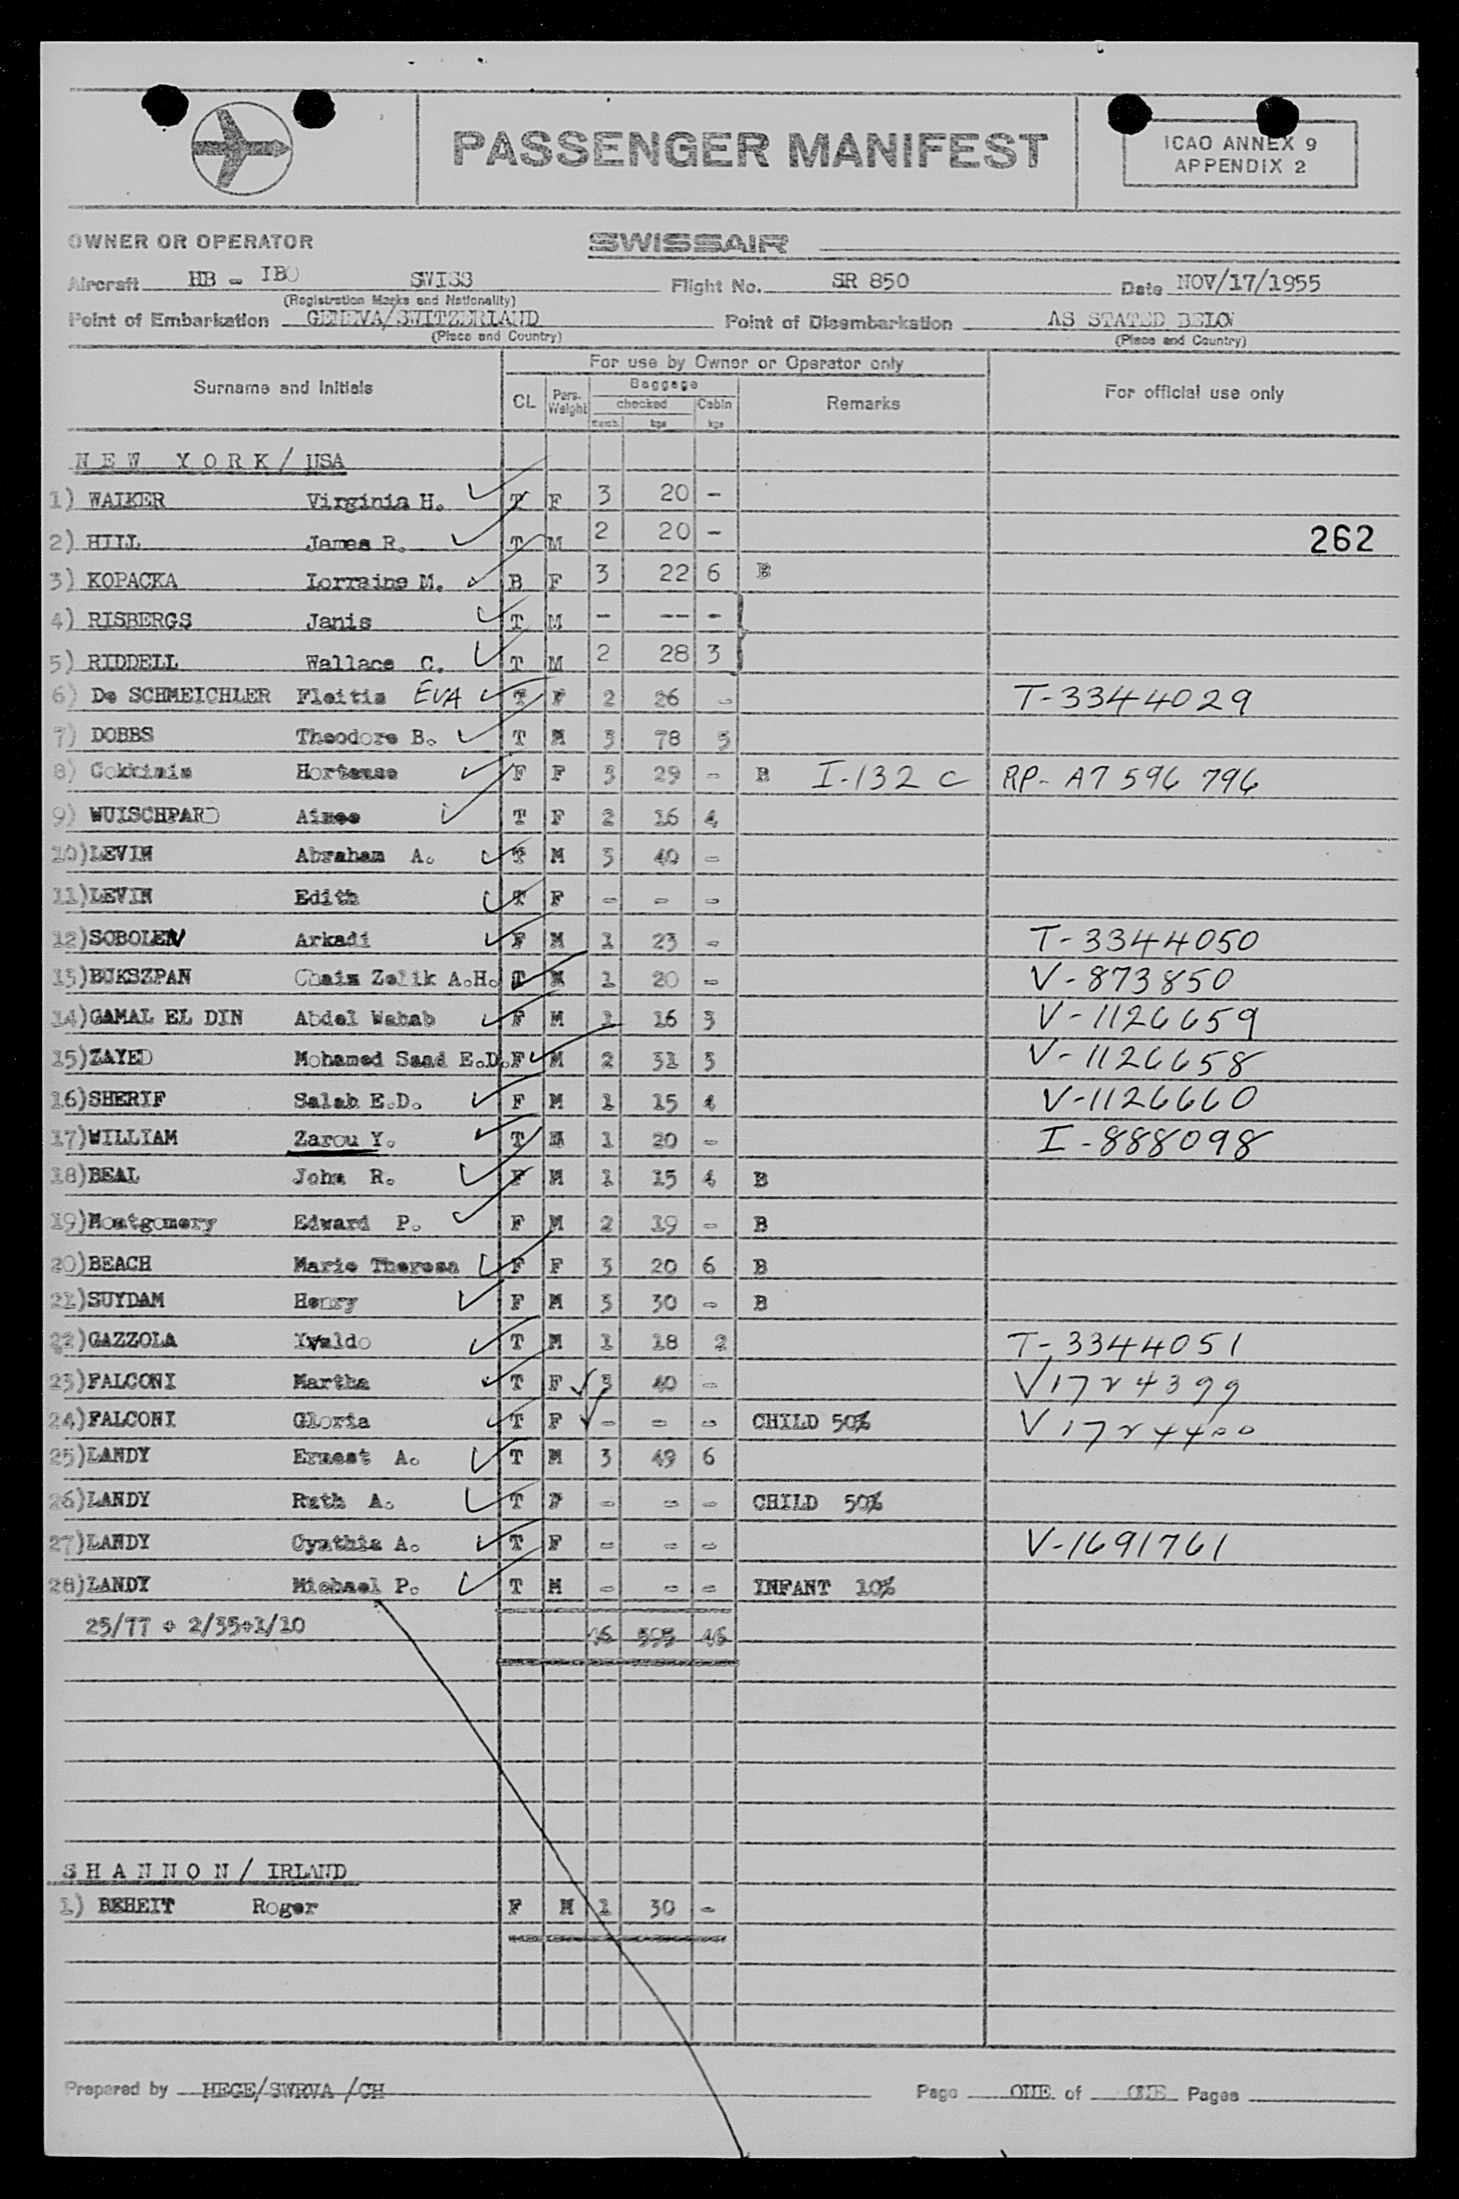 PASSENGER MANIFEST
ICAO ANNEX 9
APPENDIX 2
OWNER OR OPERATOR SWISSAIR
Aircraft HB - IBO SWISS Flight No. SR 850 Date NOV/17/1955
(Registration Marks and Nationality)
Point of Embarkation GENEVA/SWITZERLAND Point of Disembarkation AS STATED BELOW
(Place and Country) (Place and Country)
For use by Owner or Operator only
Surname and Initials CL Pers. Weight Baggage Remarks For official use only
checked Cabin
kgs kgs
NEW YORK/ USA
1) WALKER Virginia H. T F 3 20 -
2) HILL James R. T M 2 20 - 262
3) KOPACKA Lorraine M. B F 3 22 6 B
4) RISBERGS Janis T M - -- -
5) RIDDELL Wallace C. T M 2 28 3
6) De SCHMEICHLER Fleitis EVA T F 2 26 - T-3344029
7) DOBBS Theodore B. T M 3 78 5
8) Cokkinis Hortense F F 3 29 - B I-132 C RP- A7 596 796
9) WUISCHPARD Aimee T F 2 16 4
10)LEVIN Abraham A. T M 3 40 -
11)LEVIN Edith T F - - -
12)SOBOLEV Arkadi F M 1 23 - T-3344050
13)BUKSZPAN Chaim Zelik A.H. T M 1 20 - V-873850
14)GAMAL EL DIN Abdel Wahab F M 1 16 3 V-1126659
15)ZAYED Mohamed Saad E.D. F M 2 31 3 V-1126658
16)SHERIF Salah E.D. F M 1 15 4 V-1126660
17)WILLIAM Zarou Y. T M 1 20 - I-888098
18)BEAL John R. F M 1 15 4 B
19)Montgomery Edward P. F M 2 19 - B
20)BEACH Marie Theresa F F 3 20 6 B
21)SUYDAM Henry F M 3 30 - B
22)GAZZOLA Yvaldo T M 1 18 2 T-3344051
23)FALCONI Martha T F 3 40 - V1724399
24)FALCONI Gloria T F - - - CHILD 50% V1724400
25)LANDY Ernest A. T M 3 49 6
26)LANDY Ruth A. T F - - - CHILD 50%
27)LANDY Cynthia A. T F - - - V-1691761
28)LANDY Michael P. T M - - - INFANT 10%
25/TT + 2/35+1/10 46 595 46
SHANNON/ IRLAND
1) BEHEIT Roger F M 1 30 -
Prepared by HEGE/SWRVA /CH Page ONE of ONE Pages